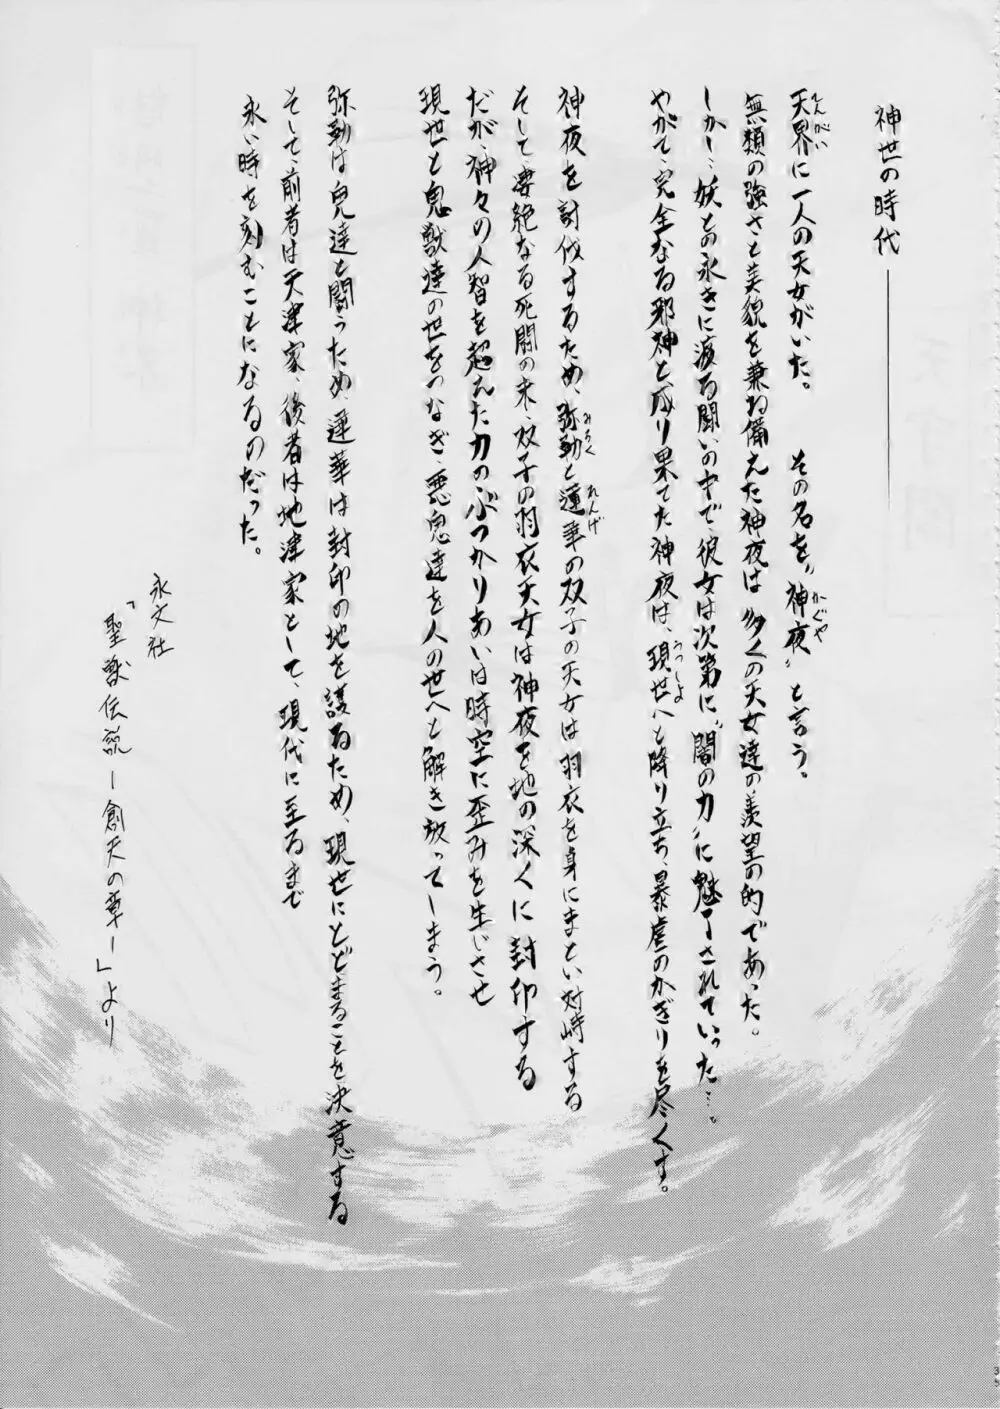 神世の時代――
天界に一人の天女がいた。 その名を〝神夜〟と言う。
無類の強さと美貌を兼ね備えた神夜は多くの天女達の羨望の的であった。
しかし…妖との永きに渡る闘いの中で、彼女は次第に〝闇の力〟に魅了されていった…。
やがて、完全なる邪神と成り果てた神夜は、現世へと降り立ち、暴虐のかぎりを尽くす。
神夜を討伐するため、弥勒と蓮華の双子の天女は羽衣を身にまとい対峙する
そして凄絶なる死闘の末、双子の羽衣天女は神夜を地の深くに封印する
だが、神々の人智を超えた力のぶつかりあいは時空に歪みを生じさせ
現世と鬼獣達の世をつなぎ、悪鬼達を人の世へと解き放ってしまう。
弥勒は鬼達と闘うため、蓮華は封印の地を護るため、現世にとどまることを決意する
そして、前者は天津家、後者は地津家として、現代に至るまで
永い時を刻むことになるのだった。
永文社
「聖獣伝説ー創天の章ー」より